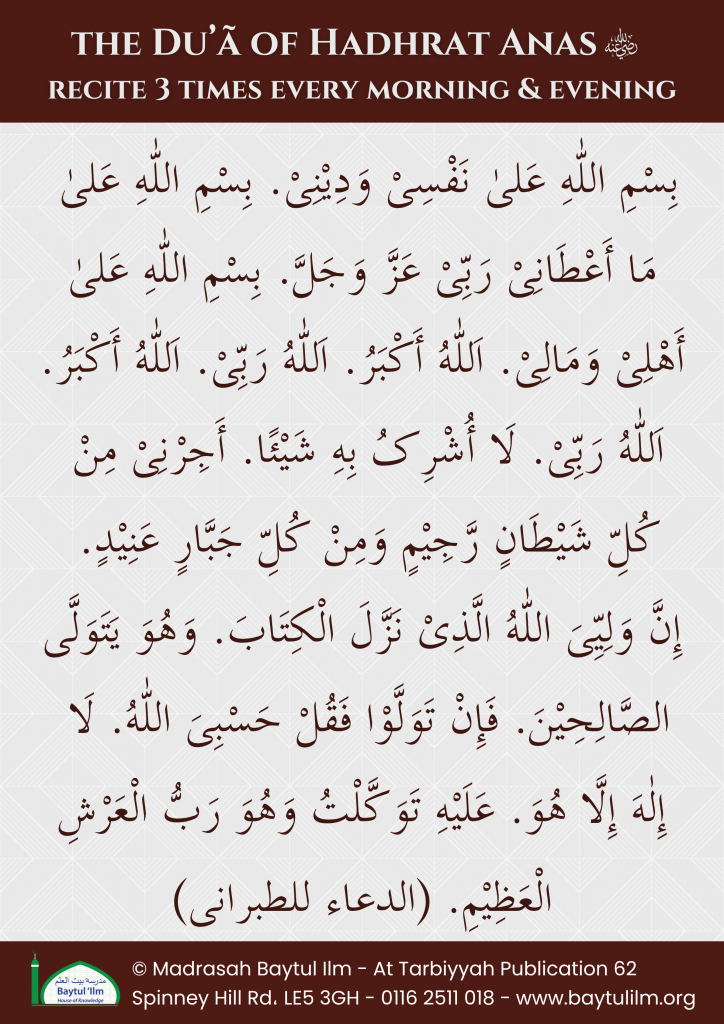 THE DU’Ã OF HADHRAT ANAS رضي الله عنه
RECITE 3 TIMES EVERY MORNING & EVENING
بِسْمِ اللّٰهِ عَلىٰ نَفْسِىْ وَدِيْنِىْ. بِسْمِ اللّٰهِ عَلىٰ
مَا أَعْطَانِىْ رَبِّىْ عَزَّ وَجَلَّ. بِسْمِ اللّٰهِ عَلىٰ
أَهْلِىْ وَمَالِىْ. اَللّٰهُ أَكْبَرُ. اَللّٰهُ رَبِّىْ. اَللّٰهُ أَكْبَرُ.
اَللّٰهُ رَبِّىْ. لَا أُشْرِكُ بِهِ شَيْئًا. أَجِرْنِىْ مِنْ
كُلِّ شَيْطَانٍ رَّجِيْمٍ وَمِنْ كُلِّ جَبَّارٍ عَنِيْدٍ.
إِنَّ وَلِيِّىَ اللّٰهُ الَّذِىْ نَزَّلَ الْكِتَابَ. وَهُوَ يَتَوَلَّى
الصَّالِحِيْنَ. فَإِنْ تَوَلَّوْا فَقُلْ حَسْبِىَ اللّٰهُ. لَا
إِلٰهَ إِلَّا هُوَ. عَلَيْهِ تَوَكَّلْتُ وَهُوَ رَبُّ الْعَرْشِ
الْعَظِيْمِ. (الدعاء للطبرانى)
مدرسة بيت العلم
Baytul ‘Ilm
House of Knowledge
© Madrasah Baytul Ilm - At Tarbiyyah Publication 62
Spinney Hill Rd. LE5 3GH - 0116 2511 018 - www.baytulilm.org